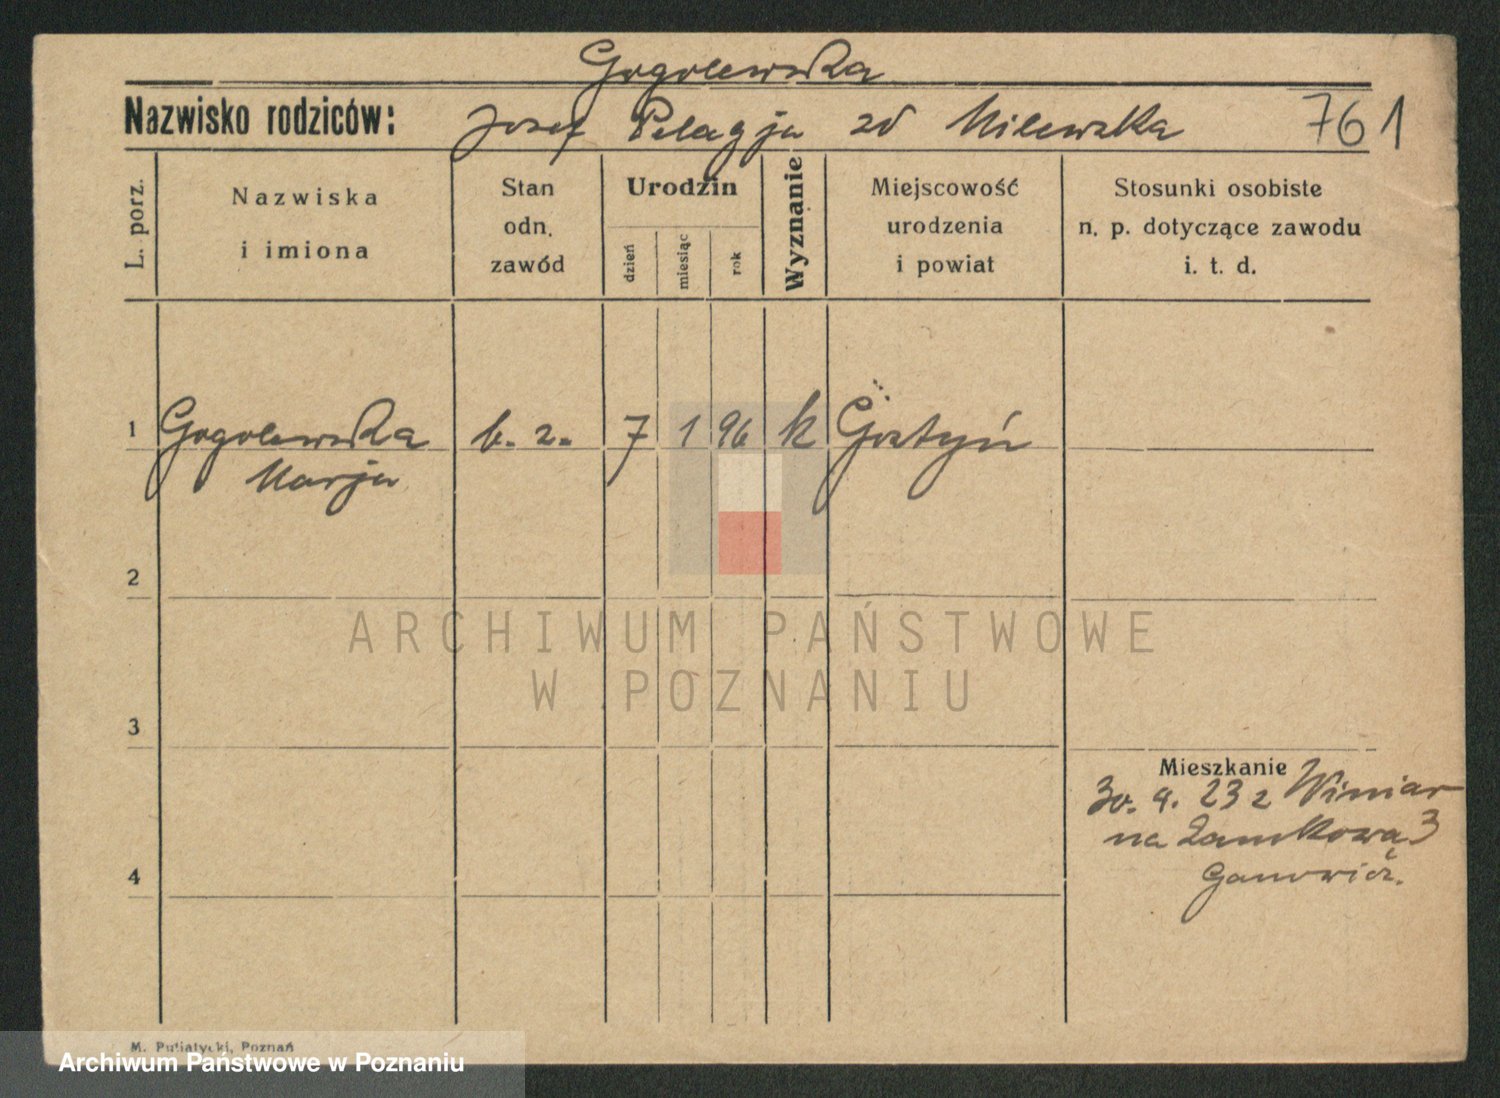 Gogolewska
Nazwisko rodziców: Josef Pelagja zd Milewska 761
L. porz.
Nazwiska
i imiona
Stan
odn.
zawód
Urodzin
dzień
miesiąc
rok
Wyznanie
Miejscowość
urodzenia
i powiat
Stosunki osobiste
n. p. dotyczące zawodu
i. t. d.
1 Gogolewska b. z. 7 1 96 k Gostyń
Marja
2
ARCHIWUM PAŃSTWOWE
W POZNANIU
3
Mieszkanie
30. 9. 23 z Winiar
na Zamkowa 3
4
M. Putiatycki, Poznań
Archiwum Państwowe w Poznaniu